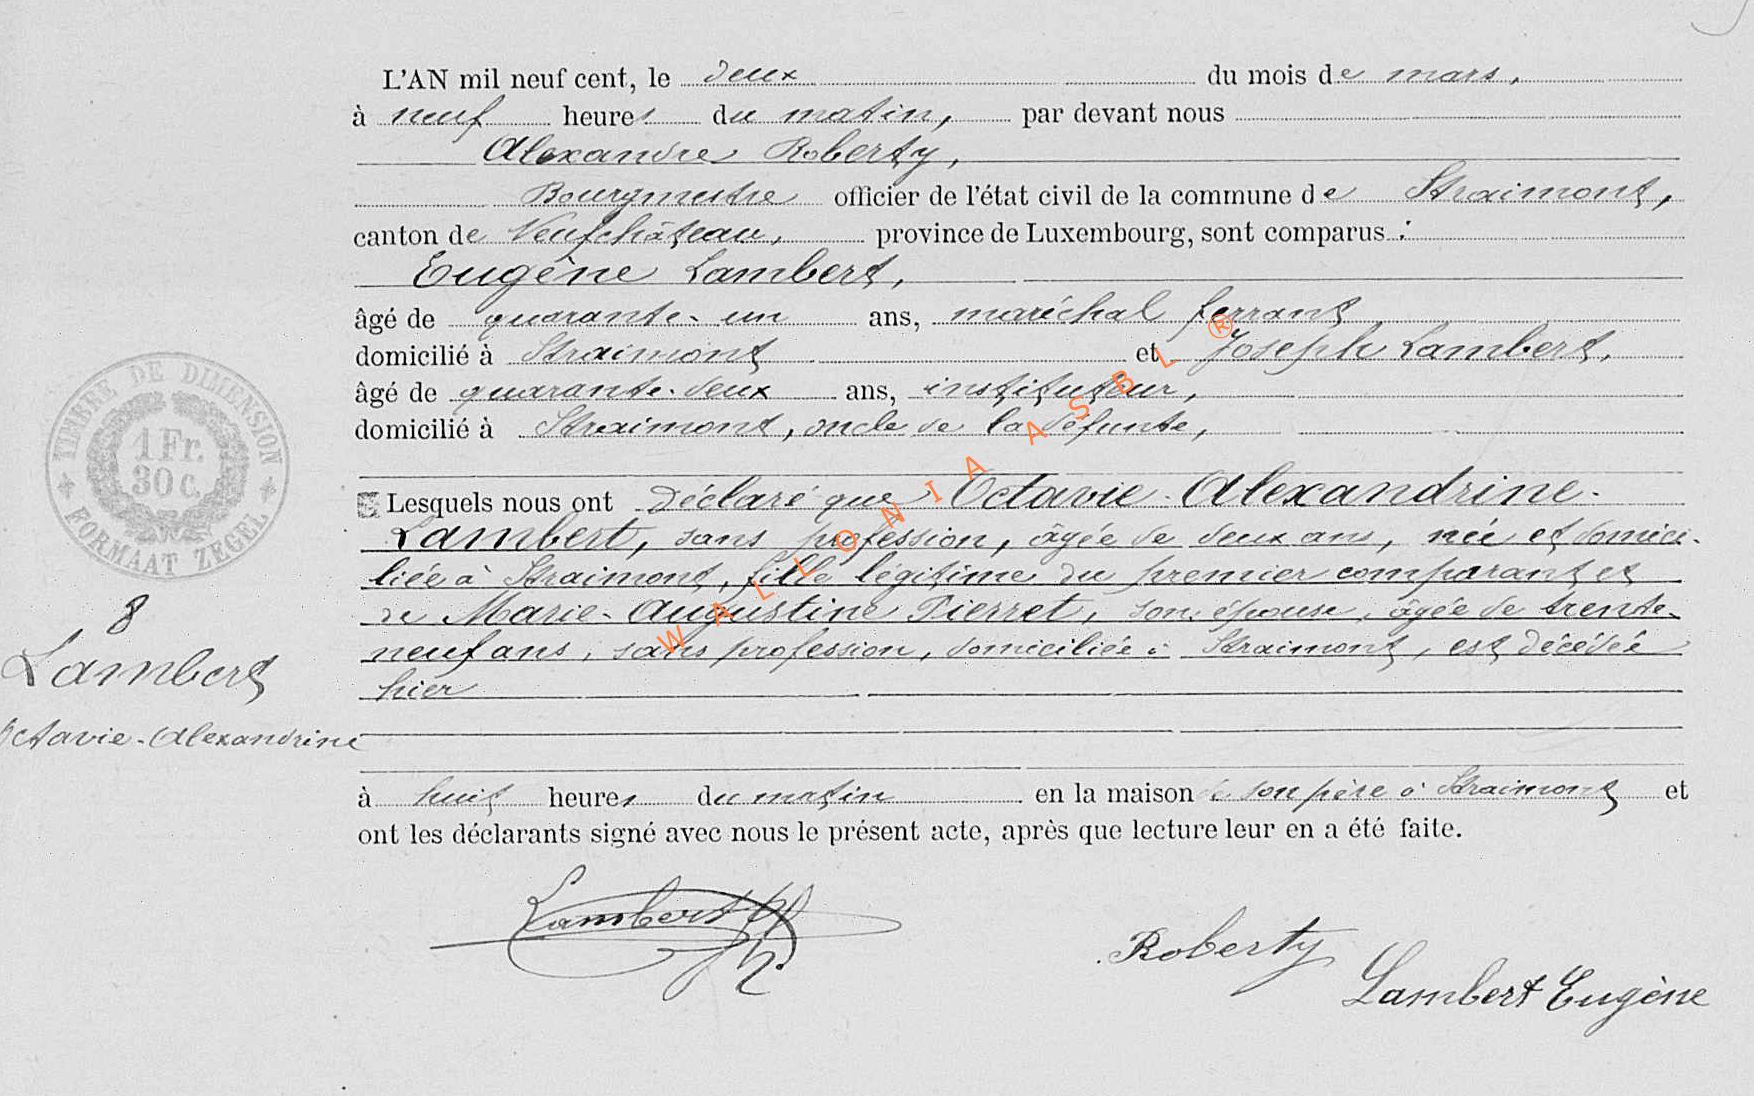 L'AN mil neuf cent, le deux du mois de mars,
à neuf heures du matin, par devant nous
Alexandre Roberty,
Bourgmestre officier de l'état civil de la commune de Straimont,
canton de Neufchâteau, province de Luxembourg, sont comparus :
Eugène Lambert,
âgé de quarante-un ans, maréchal ferrant
domicilié à Straimont et Joseph Lambert,
âgé de quarante-deux ans, instituteur,
domicilié à Straimont, oncle de la défunte,
Lesquels nous ont déclaré que Octavie-Alexandrine-
Lambert, sans profession, âgée de deux ans, née et domici-
liée à Straimont, fille légitime du premier comparant et
de Marie-Augustine Pierret, son épouse, âgée de trente-
neuf ans, sans profession, domiciliée à Straimont, est décédée
hier
à huit heures du matin en la maison de son père à Straimont et
ont les déclarants signé avec nous le présent acte, après que lecture leur en a été faite.
Lambert
Roberty
Lambert Eugène
8
Lambert
Octavie-Alexandrine
TIMBRE DE DIMENSION
1 Fr.
30 c.
FORMAAT ZEGEL
WALLONIA ASBL ®